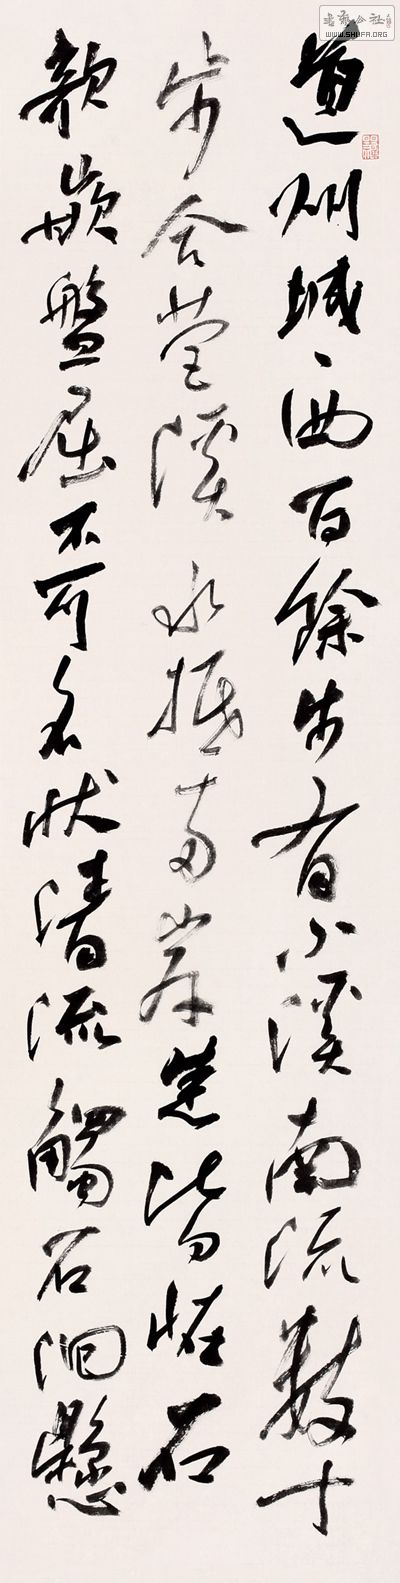 道州城西百餘步有小溪南流數十
步合營溪水抵兩岸悉皆恠石
欹嵌盤屈不可名狀清流觸石洄懸
書法公社
WWW.SHUFA.ORG